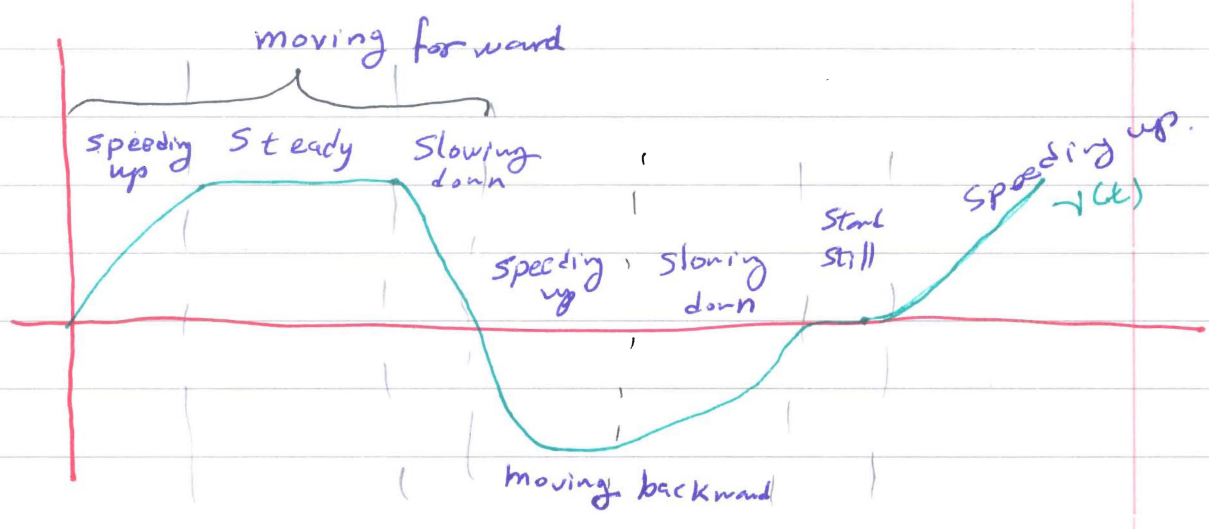 moving forward
speeding up
Steady
Slowing down
speeding up
slowing down
Stand still
speeding up.
v(t)
moving backward